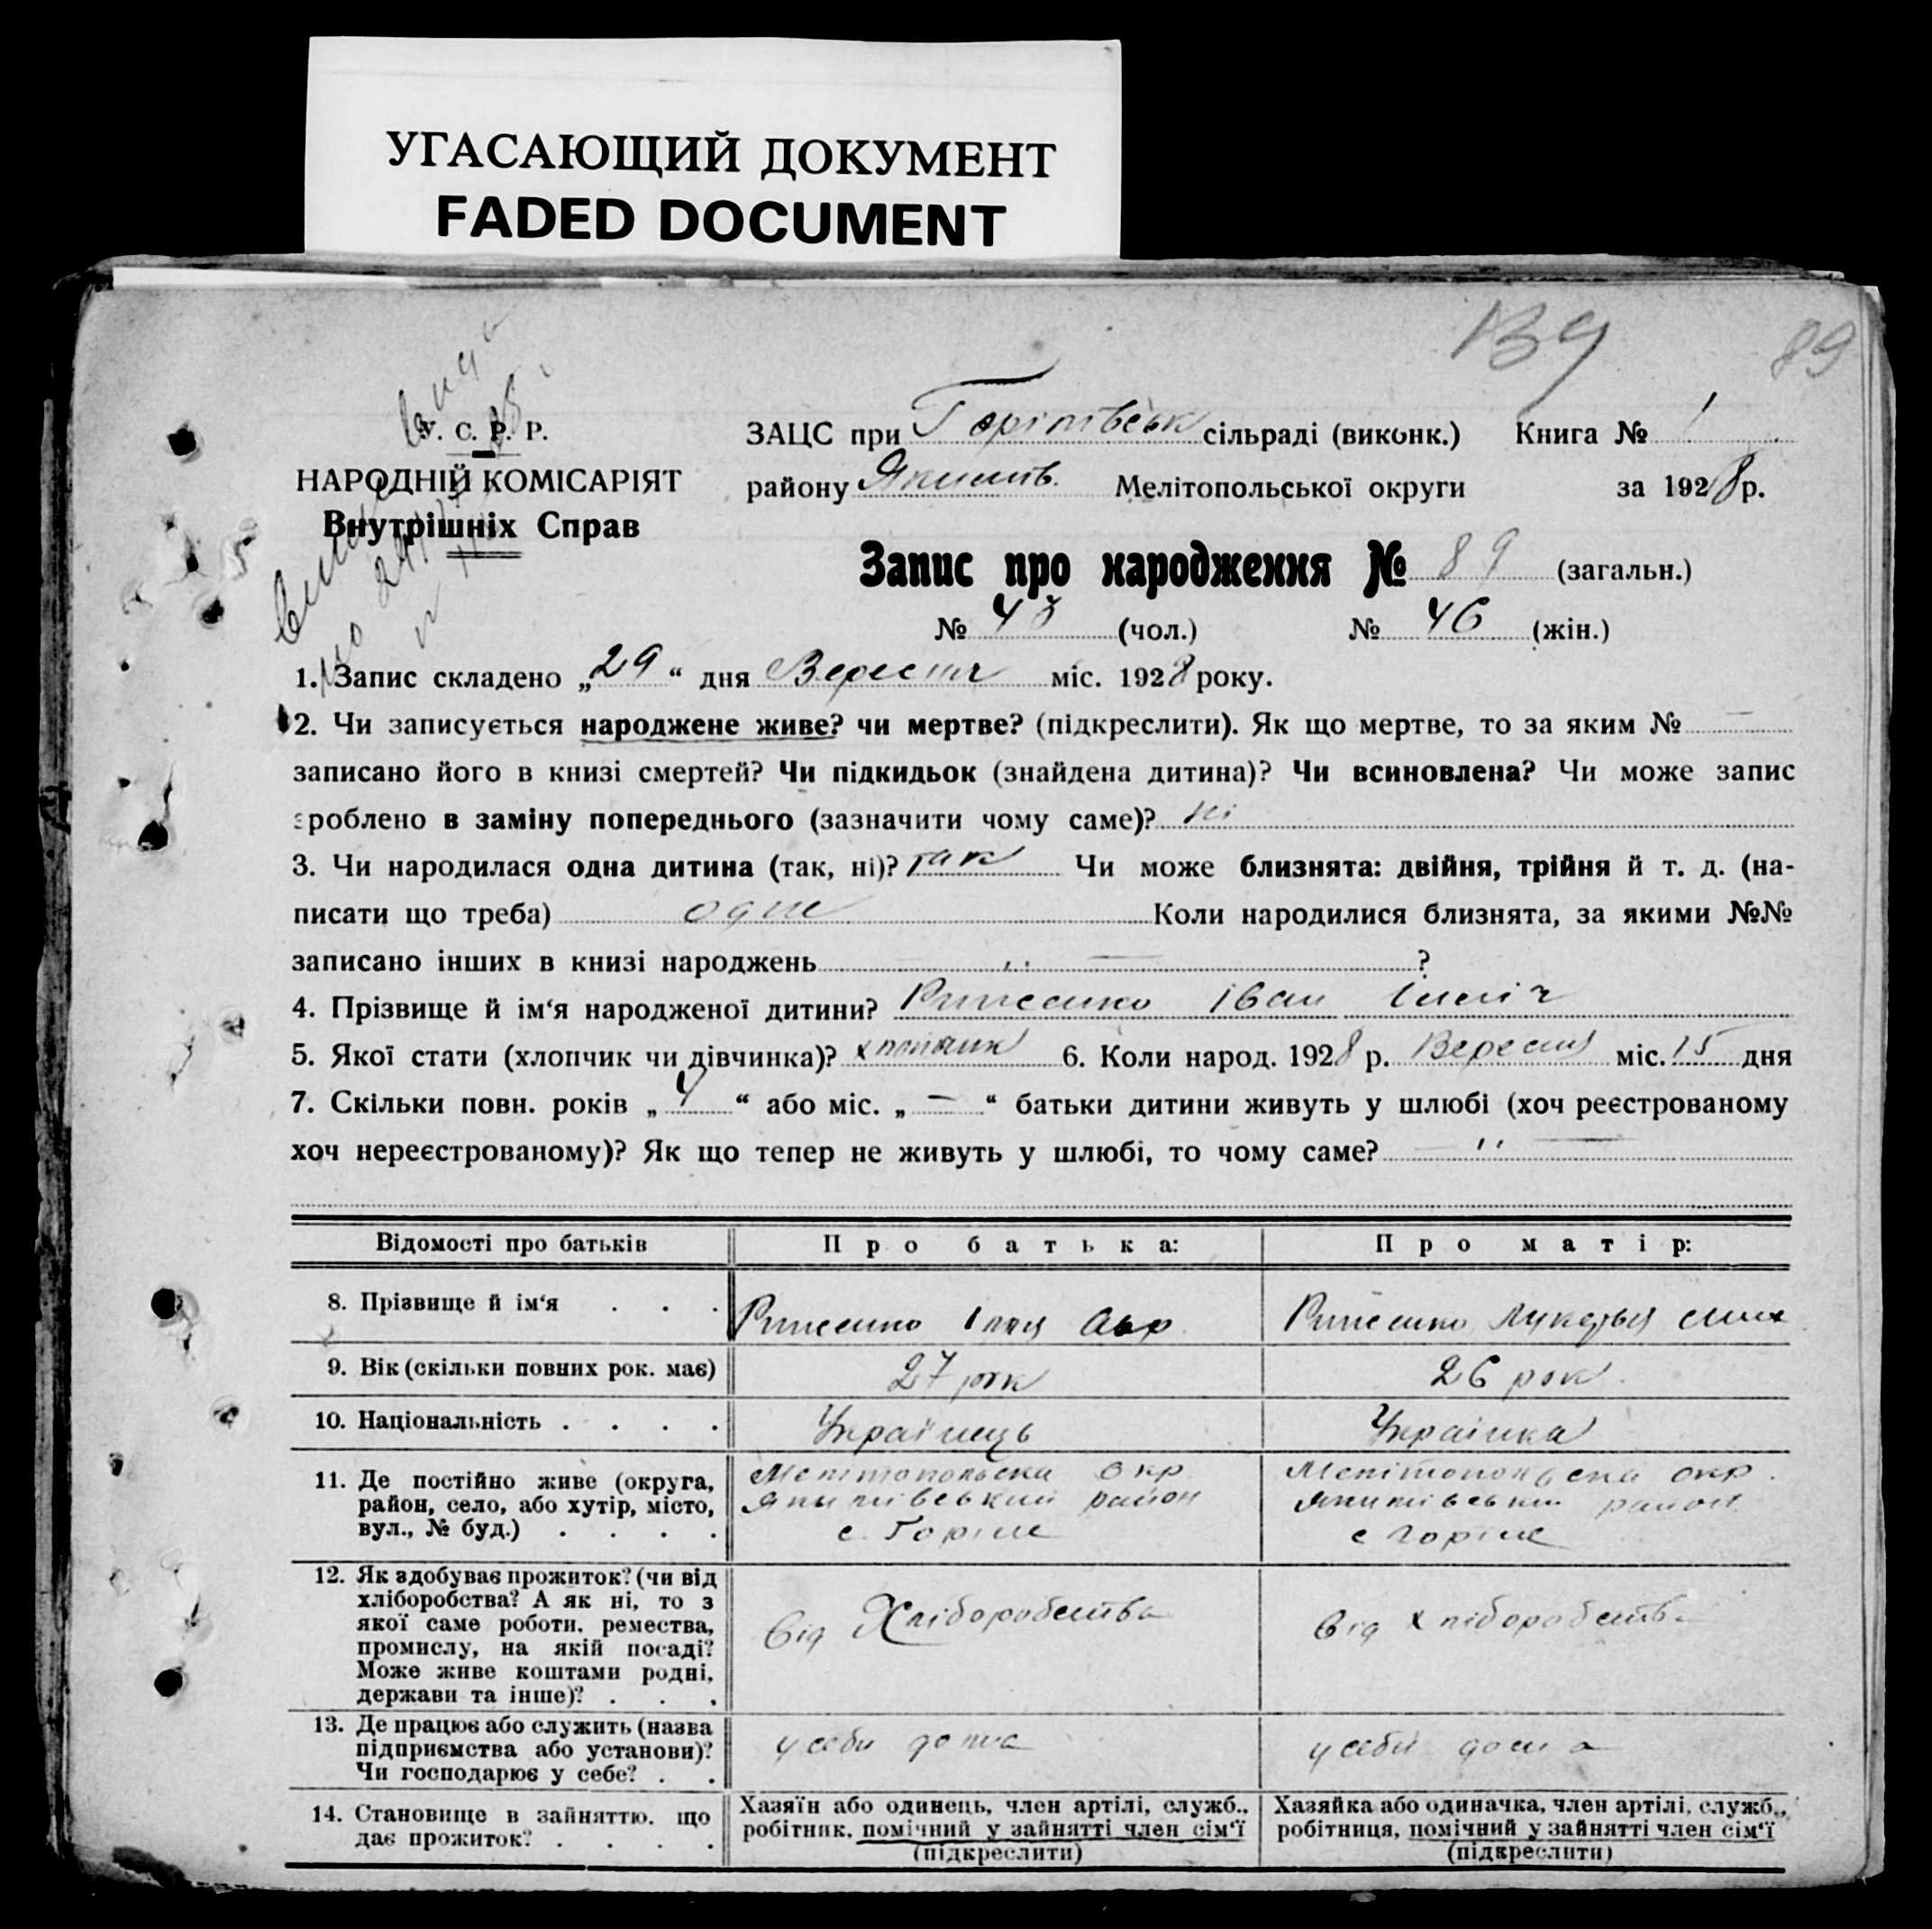 УГАСАЮЩИЙ ДОКУМЕНТ
FADED DOCUMENT
139 89
У. С. Р. Р.
НАРОДНІЙ КОМІСАРІЯТ
Внутрішніх Справ
ЗАЦС при сільраді (виконк.) Книга № 1
району Якимів. Мелітопольської округи за 1928 р.
Запис про народження № 89 (загальн.)
№ 43 (чол.) № 46 (жін.)
1. Запис складено „29“ дня Вересня міс. 1928 року.
2. Чи записується народжене живе? чи мертве? (підкреслити). Як що мертве, то за яким № —
записано його в книзі смертей? Чи підкидьок (знайдена дитина)? Чи всиновлена? Чи може запис
зроблено в заміну попереднього (зазначити чому саме)? ні
3. Чи народилася одна дитина (так, ні)? так Чи може близнята: двійня, трійня й т. д. (на-
писати що треба) одне Коли народилися близнята, за якими №№
записано інших в книзі народжень — „ — ?
4. Прізвище й ім‘я народженої дитини? Іван Ілліч
5. Якої стати (хлопчик чи дівчинка)? хлопчик 6. Коли народ. 1928 р. Вересня міс. 15 дня
7. Скільки повн. років „4“ або міс. „—“ батьки дитини живуть у шлюбі (хоч реєстрованому
хоч нереєстрованому)? Як що тепер не живуть у шлюбі, то чому саме? — „ —
Відомості про батьків Про батька: Про матір:
8. Прізвище й ім‘я . . . Ілля Авр Лукерья
9. Вік (скільки повних рок. має) 27 рок 26 рок.
10. Національність . . . . Українець Українка
11. Де постійно живе (округа, Мелітопольска окр Мелітопольска окр.
район, село, або хутір, місто, Якимівський район Якимівський район
вул., № буд.) . . . . с. Горіле с Горіле
12. Як здобуває прожиток? (чи від
хліборобства? А як ні, то з
якої саме роботи, ремества, від Хліборобства від хліборобства
промислу, на якій посаді?
Може живе коштами родні,
держави та інше)? . . .
13. Де працює або служить (назва
підприємства або установи)? у себи дома у себи дома
Чи господарює у себе? . .
14. Становище в зайняттю, що Хазяїн або одинець, член артілі, служб., Хазяйка або одиначка, член артілі, служб.,
дає прожиток? . . . . робітник, помічний у зайнятті член сім‘ї робітниця, помічний у зайнятті член сім‘ї
(підкреслити) (підкреслити)